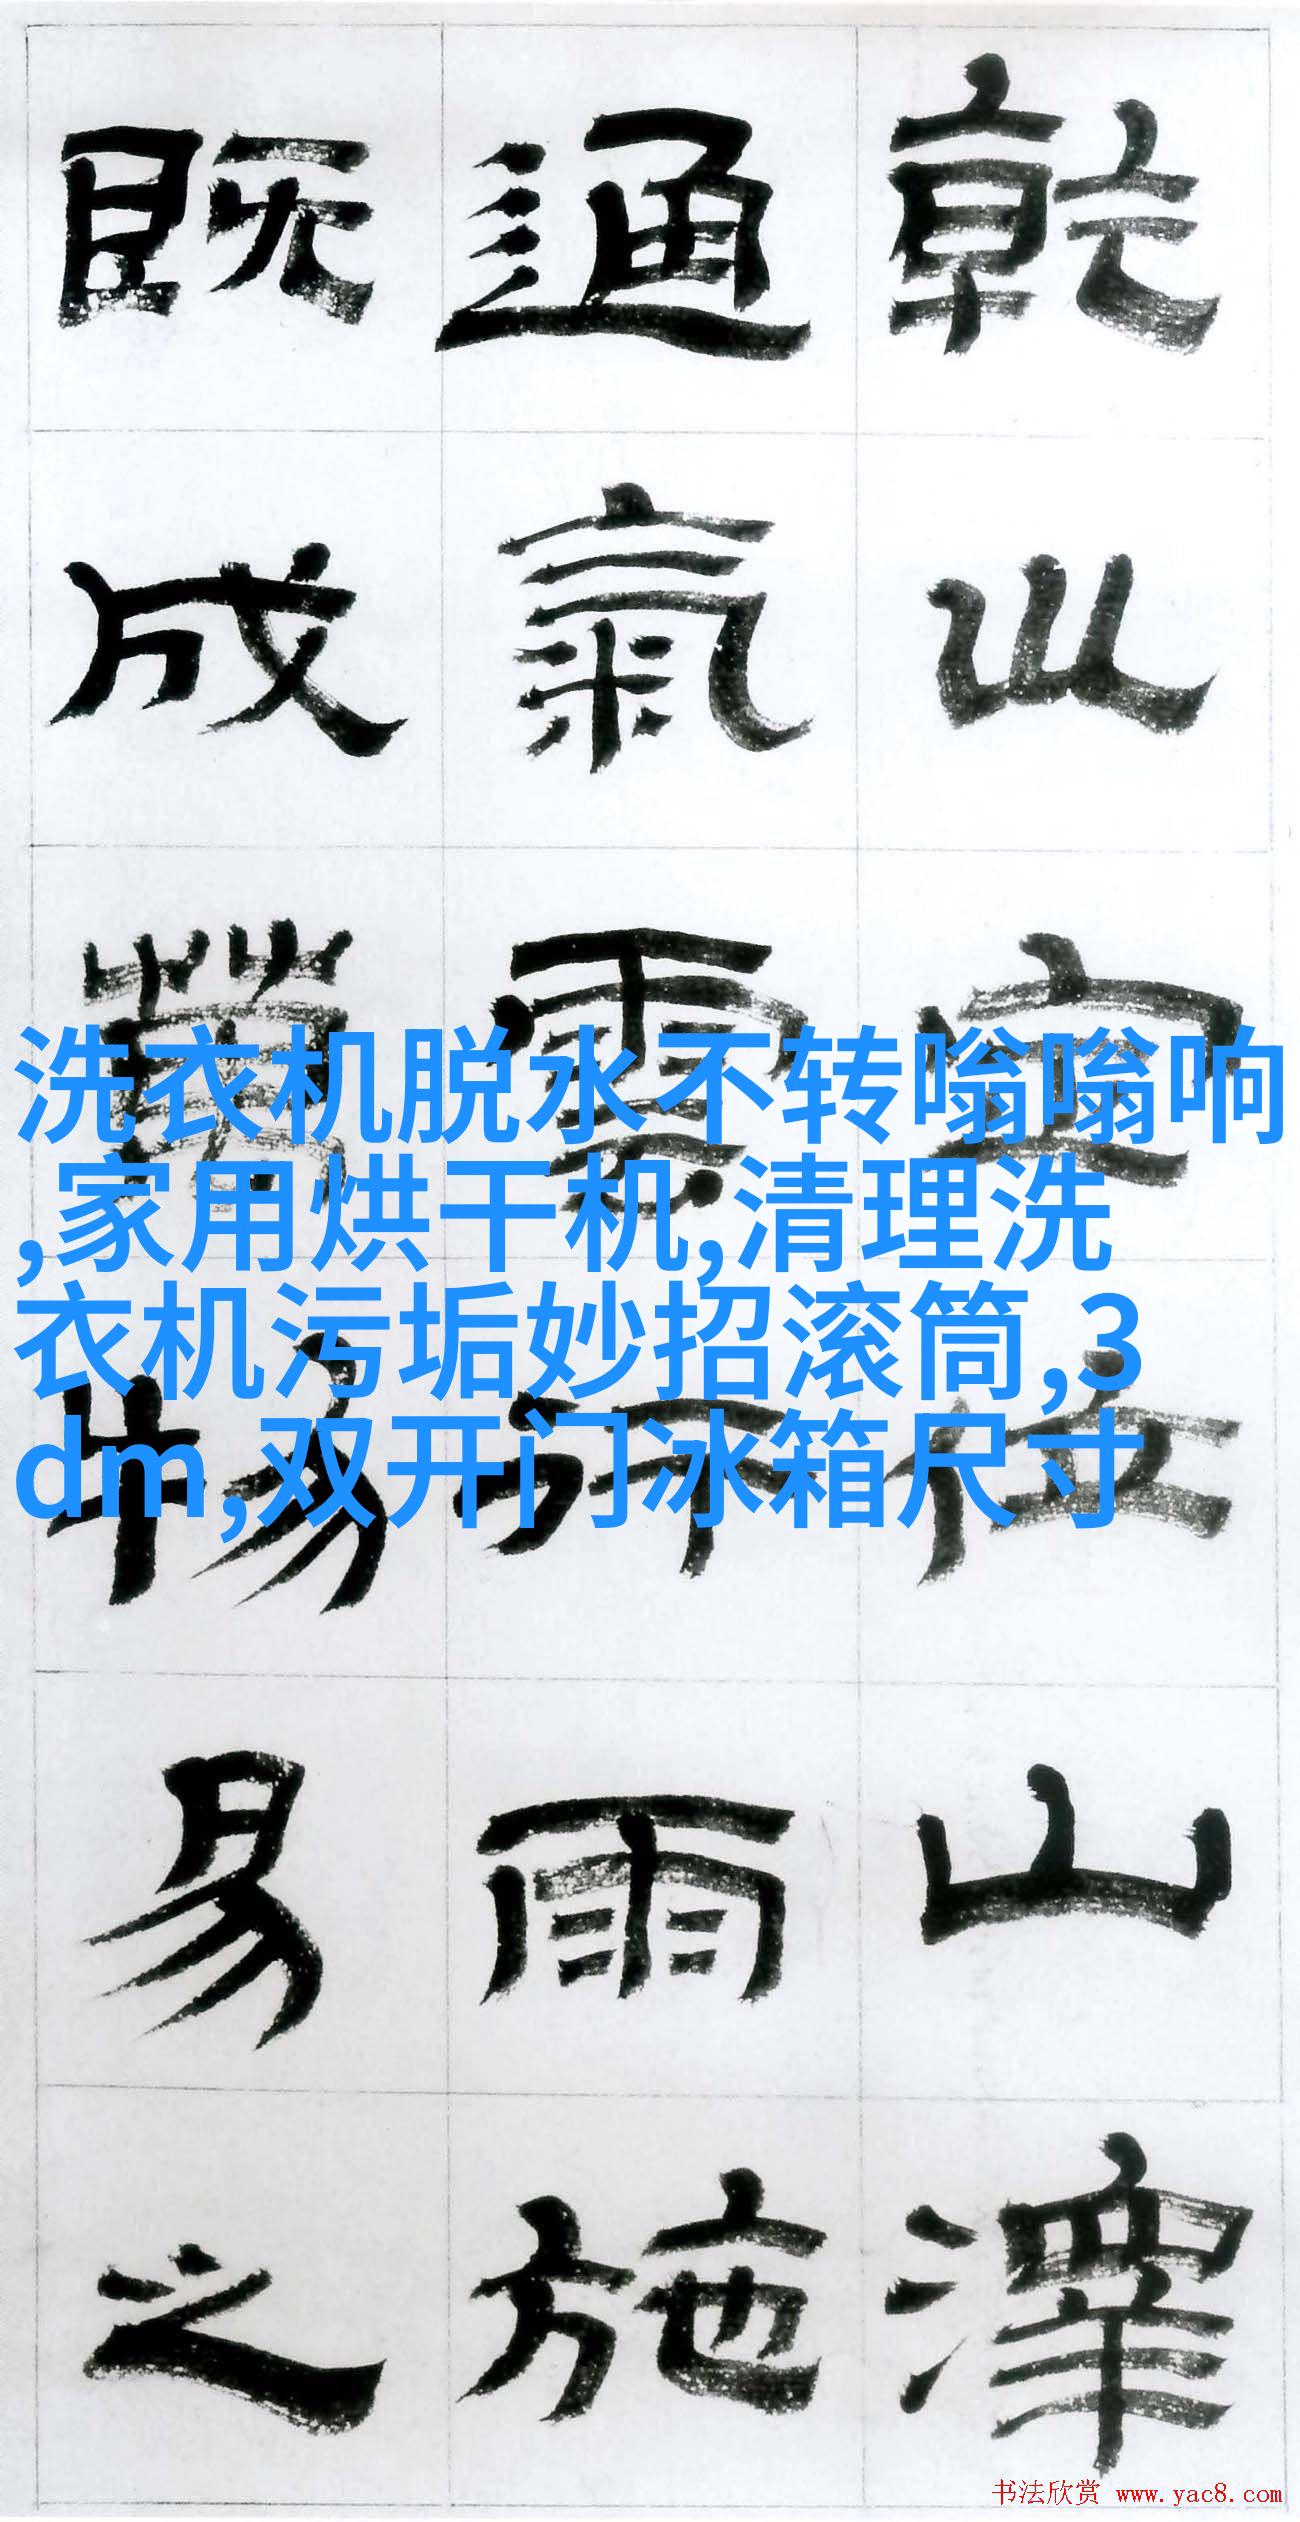 乾巛定位山澤
通氣雲行雨施
既成萬物易之
洗衣机脱水不转嗡嗡响
,家用烘干机,清理洗
衣机污垢妙招滚筒,3
dm,双开门冰箱尺寸
书法欣赏 www.yac8.com